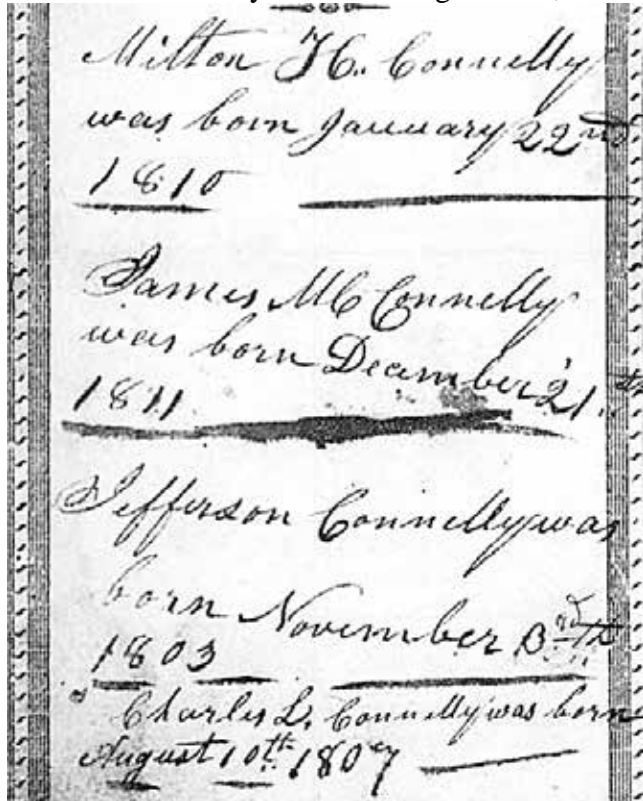 Milton H. Connelly
was born January 22nd
1810
James Mc Connelly
was born December 21.st
1811
Jefferson Connelly was
born November
1803
Charles L. Connelly was born
August 10th 1807